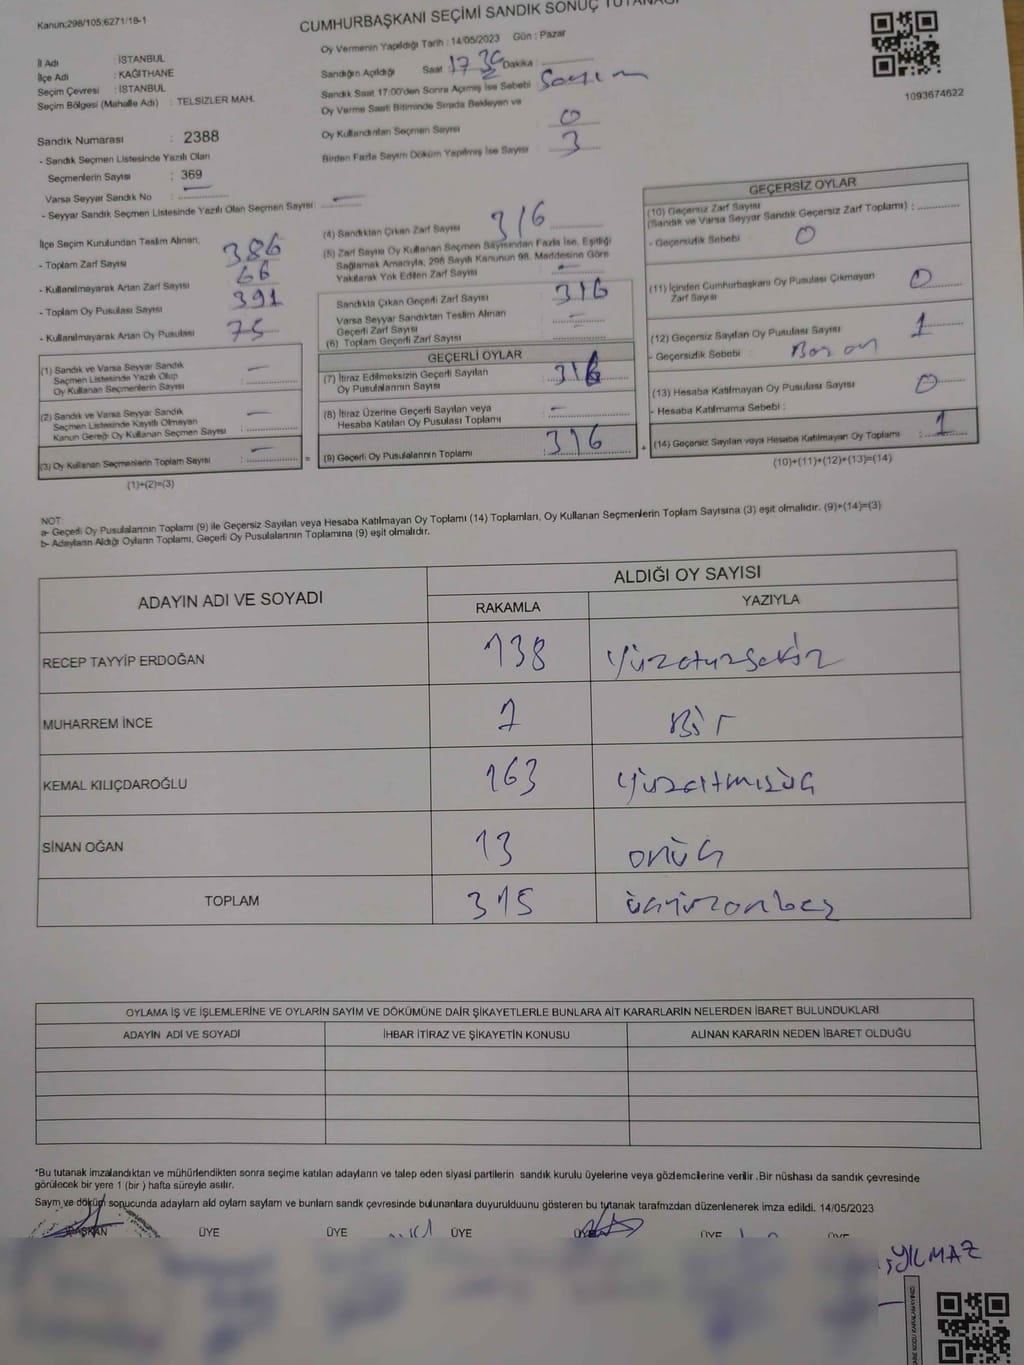 Kanun:298/105;6271/18-1
CUMHURBAŞKANI SEÇİMİ SANDIK SONUÇ TUTANAĞI
Oy Vermenin Yapıldığı Tarih : 14/05/2023 Gün : Pazar
İl Adı : İSTANBUL
İlçe Adı : KAĞITHANE
Seçim Çevresi : İSTANBUL
Seçim Bölgesi (Mahalle Adı) : TELSİZLER MAH.
Sandığın Açıldığı Saat Dakika :
Sandık Saat 17:00'den Sonra Açılmış İse Sebebi : Sayım
Oy Verme Saati Bitiminde Sırada Bekleyen ve
Oy Kullandırılan Seçmen Sayısı : 0
Birden Fazla Sayım Döküm Yapılmış İse Sayısı : 3
1093674622
Sandık Numarası : 2388
- Sandık Seçmen Listesinde Yazılı Olan
Seçmenlerin Sayısı : 369
Varsa Seyyar Sandık No : —
- Seyyar Sandık Seçmen Listesinde Yazılı Olan Seçmen Sayısı: —
İlçe Seçim Kurulundan Teslim Alınan;
- Toplam Zarf Sayısı 386
- Kullanılmayarak Artan Zarf Sayısı 66
- Toplam Oy Pusulası Sayısı 391
- Kullanılmayarak Artan Oy Pusulası 75
(1) Sandık ve Varsa Seyyar Sandık
Seçmen Listesinde Yazılı Olup
Oy Kullanan Seçmenlerin Sayısı : —
(2) Sandık ve Varsa Seyyar Sandık
Seçmen Listesinde Kayıtlı Olmayan
Kanun Gereği Oy Kullanan Seçmen Sayısı : —
(3) Oy Kullanan Seçmenlerin Toplam Sayısı : —
(1)+(2)=(3)
(4) Sandıktan Çıkan Zarf Sayısı : 316
(5) Zarf Sayısı Oy Kullanan Seçmen Sayısından Fazla İse, Eşitliği
Sağlamak Amacıyla; 298 Sayılı Kanunun 98. Maddesine Göre
Yakılarak Yok Edilen Zarf Sayısı : —
Sandıkta Çıkan Geçerli Zarf Sayısı : 316
Varsa Seyyar Sandıktan Teslim Alınan
Geçerli Zarf Sayısı : —
(6) Toplam Geçerli Zarf Sayısı :
GEÇERLİ OYLAR
(7) İtiraz Edilmeksizin Geçerli Sayılan
Oy Pusulalarının Sayısı : 316
(8) İtiraz Üzerine Geçerli Sayılan veya
Hesaba Katılan Oy Pusulası Toplamı : —
(9) Geçerli Oy Pusulalarının Toplamı : 316
GEÇERSİZ OYLAR
(10) Geçersiz Zarf Sayısı
(Sandık ve Varsa Seyyar Sandık Geçersiz Zarf Toplamı) :
- Geçersizlik Sebebi : 0
(11) İçinden Cumhurbaşkanı Oy Pusulası Çıkmayan
Zarf Sayısı : 0
(12) Geçersiz Sayılan Oy Pusulası Sayısı : 1
- Geçersizlik Sebebi :
(13) Hesaba Katılmayan Oy Pusulası Sayısı : 0
- Hesaba Katılmama Sebebi :
(14) Geçersiz Sayılan veya Hesaba Katılmayan Oy Toplamı : 1
(10)+(11)+(12)+(13)=(14)
NOT:
a- Geçerli Oy Pusulalarının Toplamı (9) ile Geçersiz Sayılan veya Hesaba Katılmayan Oy Toplamı (14) Toplamları, Oy Kullanan Seçmenlerin Toplam Sayısına (3) eşit olmalıdır. (9)+(14)=(3)
b- Adayların Aldığı Oyların Toplamı, Geçerli Oy Pusulalarının Toplamına (9) eşit olmalıdır.
ADAYIN ADI VE SOYADI ALDIĞI OY SAYISI
RAKAMLA YAZIYLA
RECEP TAYYİP ERDOĞAN 138 yüzotuzsekiz
MUHARREM İNCE 1 Bir
KEMAL KILIÇDAROĞLU 163 yüzaltmışüç
SİNAN OĞAN 13 onüç
TOPLAM 315 üçyüzonbeş
OYLAMA İŞ VE İŞLEMLERİNE VE OYLARIN SAYIM VE DÖKÜMÜNE DAİR ŞİKAYETLERLE BUNLARA AİT KARARLARIN NELERDEN İBARET BULUNDUKLARI
ADAYIN ADI VE SOYADI İHBAR İTİRAZ VE ŞİKAYETİN KONUSU ALINAN KARARIN NEDEN İBARET OLDUĞU
*Bu tutanak imzalandıktan ve mühürlendikten sonra seçime katılan adayların ve talep eden siyasi partilerin sandık kurulu üyelerine veya gözlemcilerine verilir .Bir nüshası da sandık çevresinde
görülecek bir yere 1 (bir ) hafta süreyle asılır.
Saym ve döküm sonucunda adaylarn ald oylarn saylarn ve bunlarn sandk çevresinde bulunanlara duyurulduunu gösteren bu tutanak tarafmzdan düzenlenerek imza edildi. 14/05/2023
BAŞKAN ÜYE ÜYE ÜYE ÜYE ÜYE ÜYE
YILMAZ